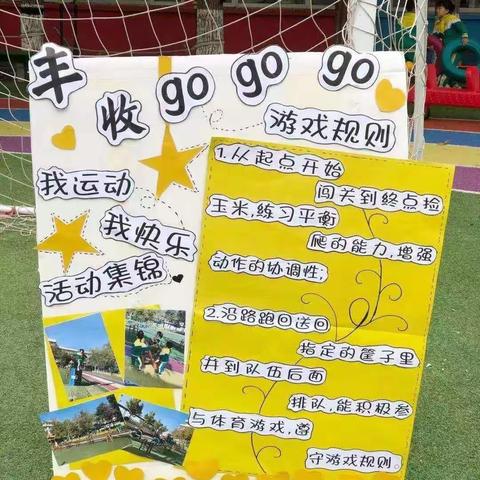 丰收gogogo
我运动
我快乐
活动集锦
游戏规则
1.从起点开始
闯关到终点捡
玉米,练习平衡
爬的能力,增强
动作的协调性;
2.沿路跑回送回
指定的筐子里
并到队伍后面
排队,能积极参
与体育游戏,遵
守游戏规则。